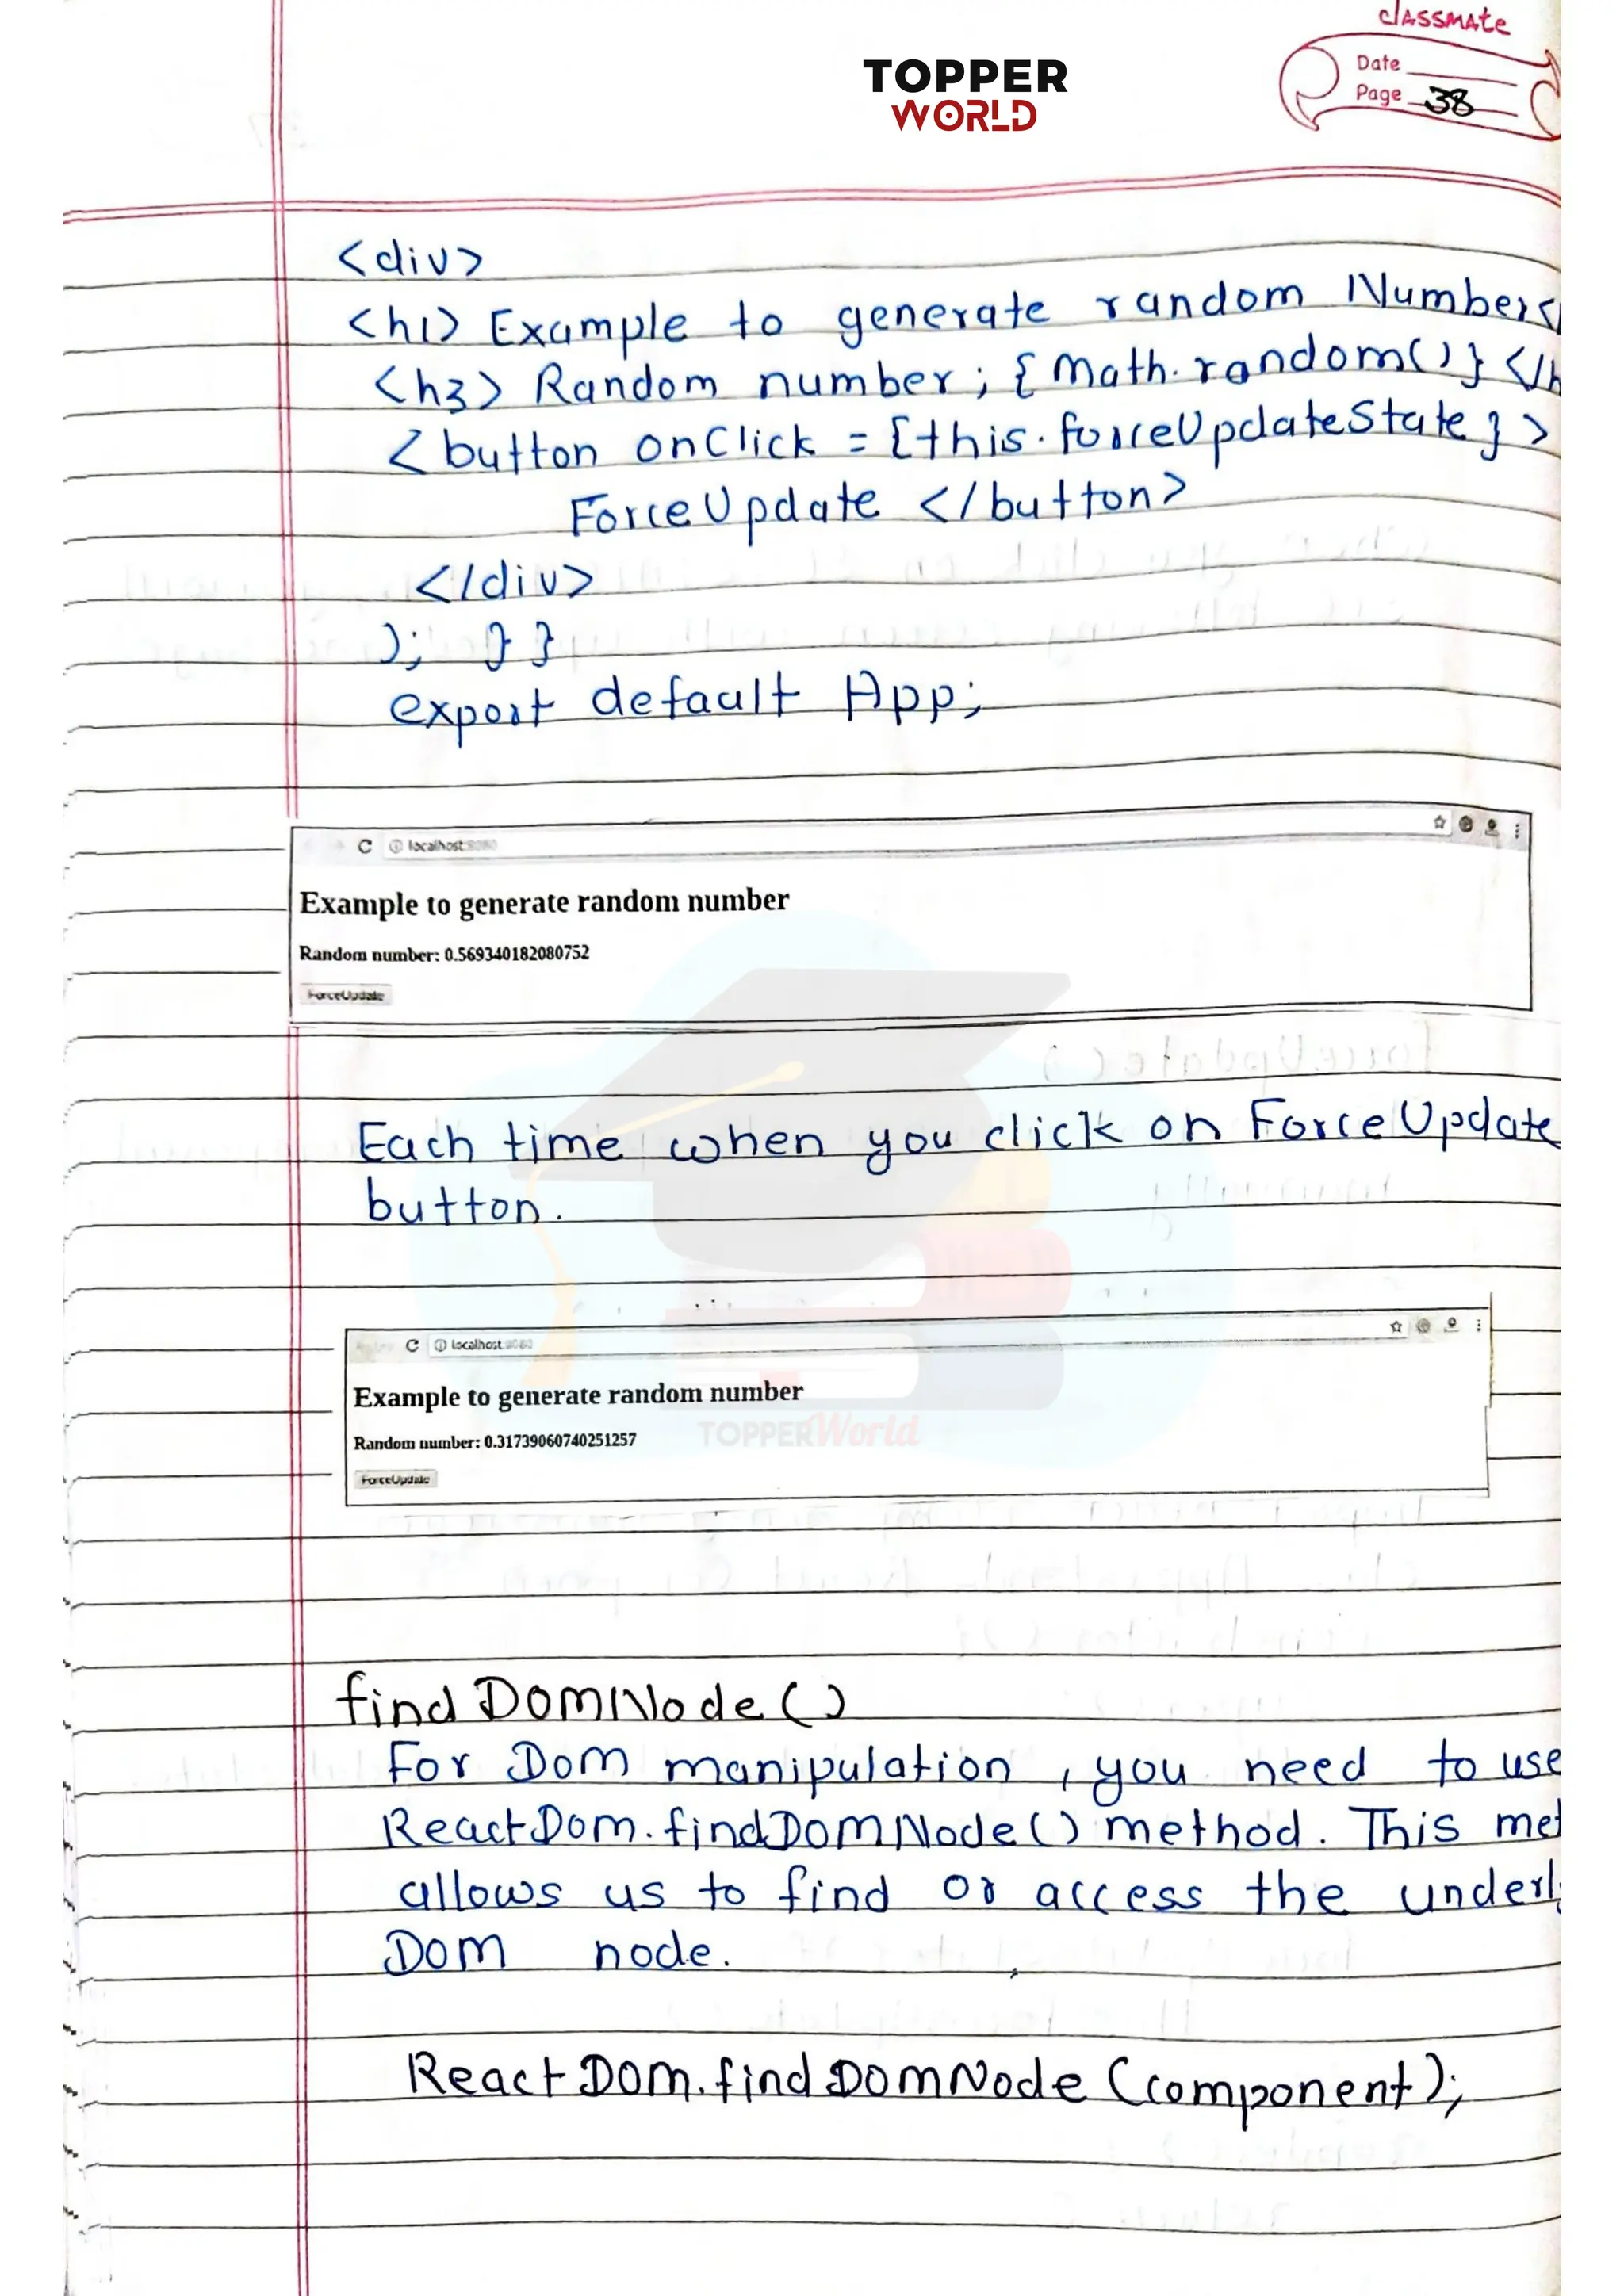 classmate
TOPPER
WORLD
Date
Page 38
<div>
<h1> Example to generate random Number<
<h3> Random number; {Math.random()} </h
<button onClick = {this.forceUpdateState}>
ForceUpdate </button>
</div>
); } }
export default App;
localhost:8080
Example to generate random number
Random number: 0.569340182080752
ForceUpdate
Each time when you click on ForceUpdate
button.
localhost:8080
Example to generate random number
Random number: 0.31739060740251257
ForceUpdate
TOPPERWorld
findDOMNode()
For DOM manipulation, you need to use
ReactDOM.findDOMNode() method. This met
allows us to find or access the underl
DOM node.
ReactDOM.findDOMNode(component);